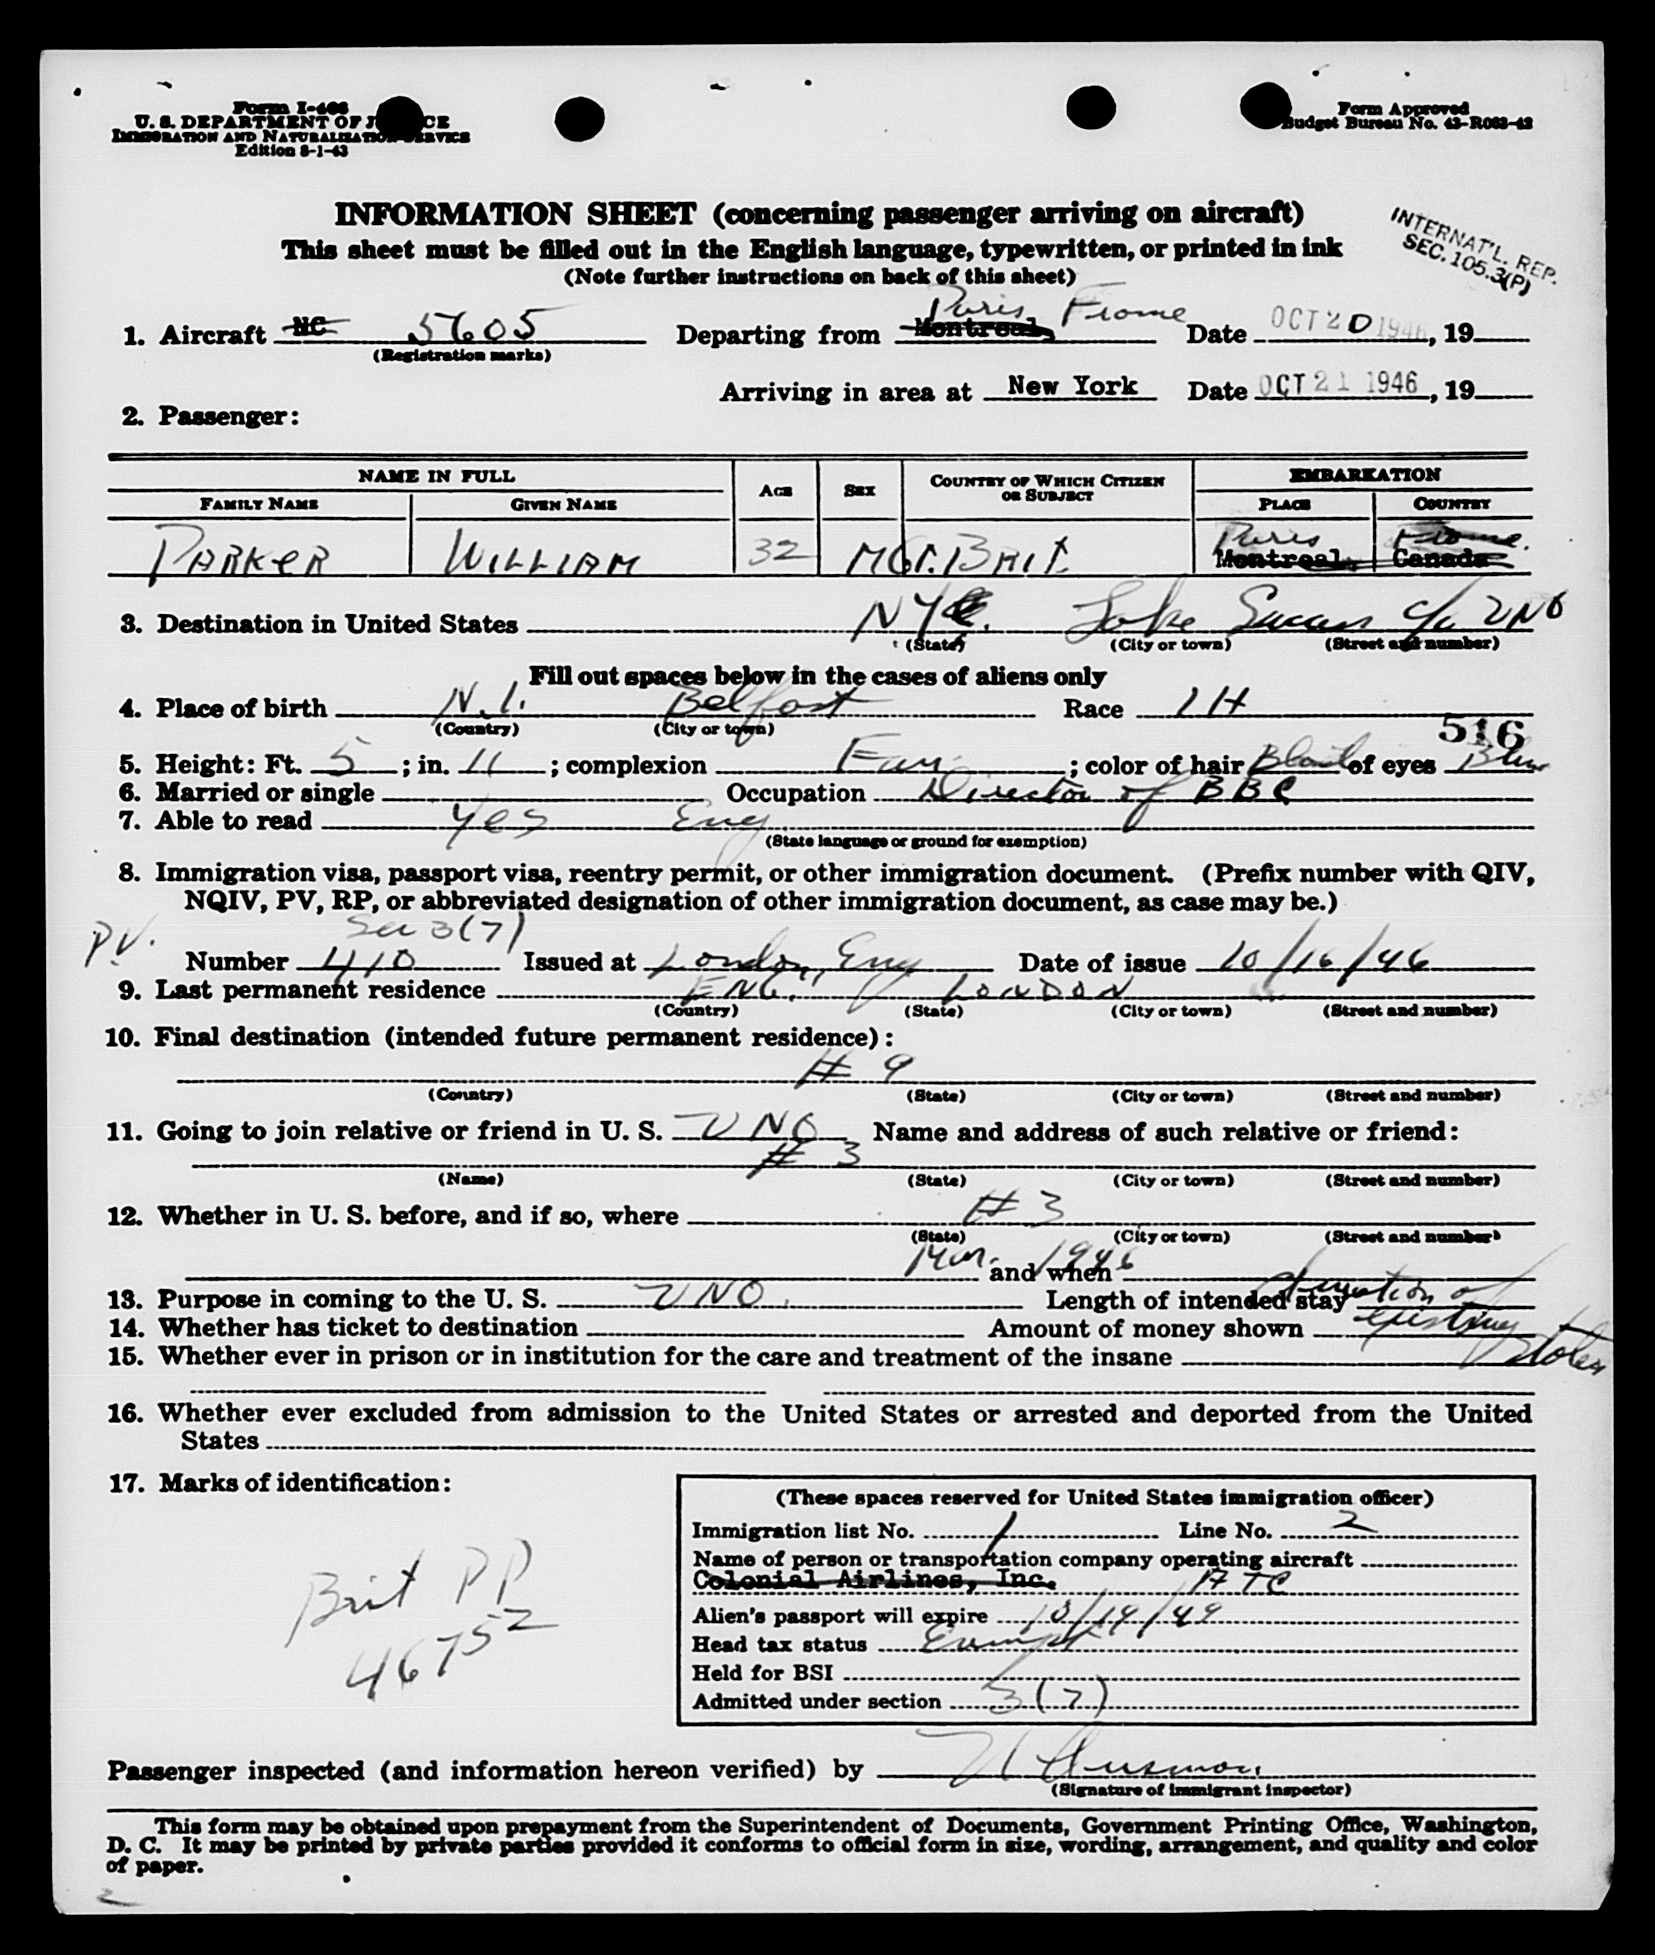 Form I-466
U. S. DEPARTMENT OF JUSTICE
IMMIGRATION AND NATURALIZATION SERVICE
Edition 8-1-43
Form Approved
Budget Bureau No. 43-R063-42
INFORMATION SHEET (concerning passenger arriving on aircraft)
This sheet must be filled out in the English language, typewritten, or printed in ink
(Note further instructions on back of this sheet)
INTERNAT'L. REP.
SEC. 105.3(P)
Paris
1. Aircraft NC 5605 Departing from Montreal Date OCT 20 1946, 19
(Registration marks)
Arriving in area at New York Date OCT 21 1946, 19
2. Passenger:
NAME IN FULL AGE SEX COUNTRY OF WHICH CITIZEN OR SUBJECT EMBARKATION
FAMILY NAME GIVEN NAME PLACE COUNTRY
Paris
PARKER WILLIAM 32 M Gt. BRIT Montreal, Canada
3. Destination in United States NYC. Lake Success c/o UNO
(State) (City or town) (Street and number)
Fill out spaces below in the cases of aliens only
4. Place of birth N.I. Belfast Race IH
(Country) (City or town)
516
5. Height: Ft. 5; in. 11; complexion Fair; color of hair Blond of eyes Blue
6. Married or single Occupation Director of BBC
7. Able to read Yes Eng
(State language or ground for exemption)
8. Immigration visa, passport visa, reentry permit, or other immigration document. (Prefix number with QIV,
NQIV, PV, RP, or abbreviated designation of other immigration document, as case may be.)
PV. Sec 3(7)
Number 410 Issued at London, Eng Date of issue 10/16/46
9. Last permanent residence ENG. LONDON
(Country) (State) (City or town) (Street and number)
10. Final destination (intended future permanent residence):
# 9
(Country) (State) (City or town) (Street and number)
11. Going to join relative or friend in U. S. UNO Name and address of such relative or friend:
# 3
(Name) (State) (City or town) (Street and number)
12. Whether in U. S. before, and if so, where # 3
(State) (City or town) (Street and number)
Mar. 1946 and when
13. Purpose in coming to the U. S. UNO. Length of intended stay duration of
14. Whether has ticket to destination Amount of money shown
15. Whether ever in prison or in institution for the care and treatment of the insane
16. Whether ever excluded from admission to the United States or arrested and deported from the United
States
17. Marks of identification:
Brit PP
46752
(These spaces reserved for United States immigration officer)
Immigration list No. 1 Line No. 2
Name of person or transportation company operating aircraft
Colonial Airlines, Inc. ATC
Alien's passport will expire 10/19/49
Head tax status Exempt
Held for BSI
Admitted under section 3(7)
Passenger inspected (and information hereon verified) by
(Signature of immigrant inspector)
This form may be obtained upon prepayment from the Superintendent of Documents, Government Printing Office, Washington,
D. C. It may be printed by private parties provided it conforms to official form in size, wording, arrangement, and quality and color
of paper.
2